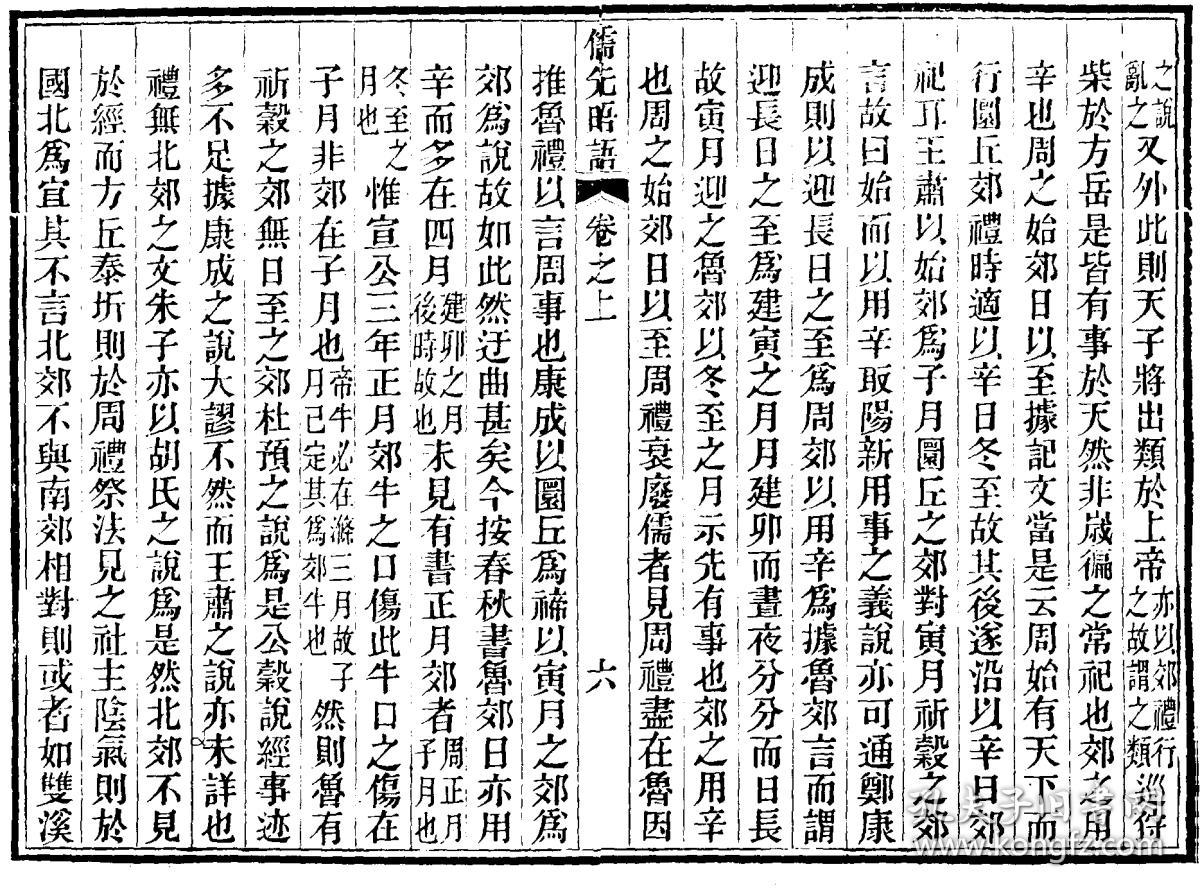 之說亂之又外此則天子將出類於上帝亦以郊禮行之故謂之類巡狩
柴於方岳是皆有事於天然非歲徧之常祀也郊之用
辛也周之始郊日以至據記文當是云周始有天下而
行圜丘郊禮時適以辛日冬至故其後遂沿以辛日郊
祀耳王肅以始郊爲子月圜丘之郊對寅月祈穀之郊
言故曰始而以用辛取陽新用事之義說亦可通鄭康
成則以迎長日之至爲周郊以用辛爲據魯郊言而謂
迎長日之至爲建寅之月月建卯而晝夜分分而日長
故寅月迎之魯郊以冬至之月示先有事也郊之用辛
也周之始郊日以至周禮衰廢儒者見周禮盡在魯因
儒先晤語 卷之上 六
推魯禮以言周事也康成以圜丘爲禘以寅月之郊爲
郊爲說故如此然迂曲甚矣今按春秋書魯郊日亦用
辛而多在四月建卯之月後時故也未見有書正月郊者周正月子月也
冬至之月也惟宣公三年正月郊牛之口傷此牛口之傷在
子月非郊在子月也帝牛必在滌三月故子月已定其爲郊牛也然則魯有
祈穀之郊無日至之郊杜預之說爲是公穀說經事迹
多不足據康成之說大謬不然而王肅之說亦未詳也
禮無北郊之文朱子亦以胡氏之說爲是然北郊不見
於經而方丘泰圻則於周禮祭法見之社主陰氣則於
國北爲宜其不言北郊不與南郊相對則或者如雙溪
孔夫子旧书网
www.kongfz.com